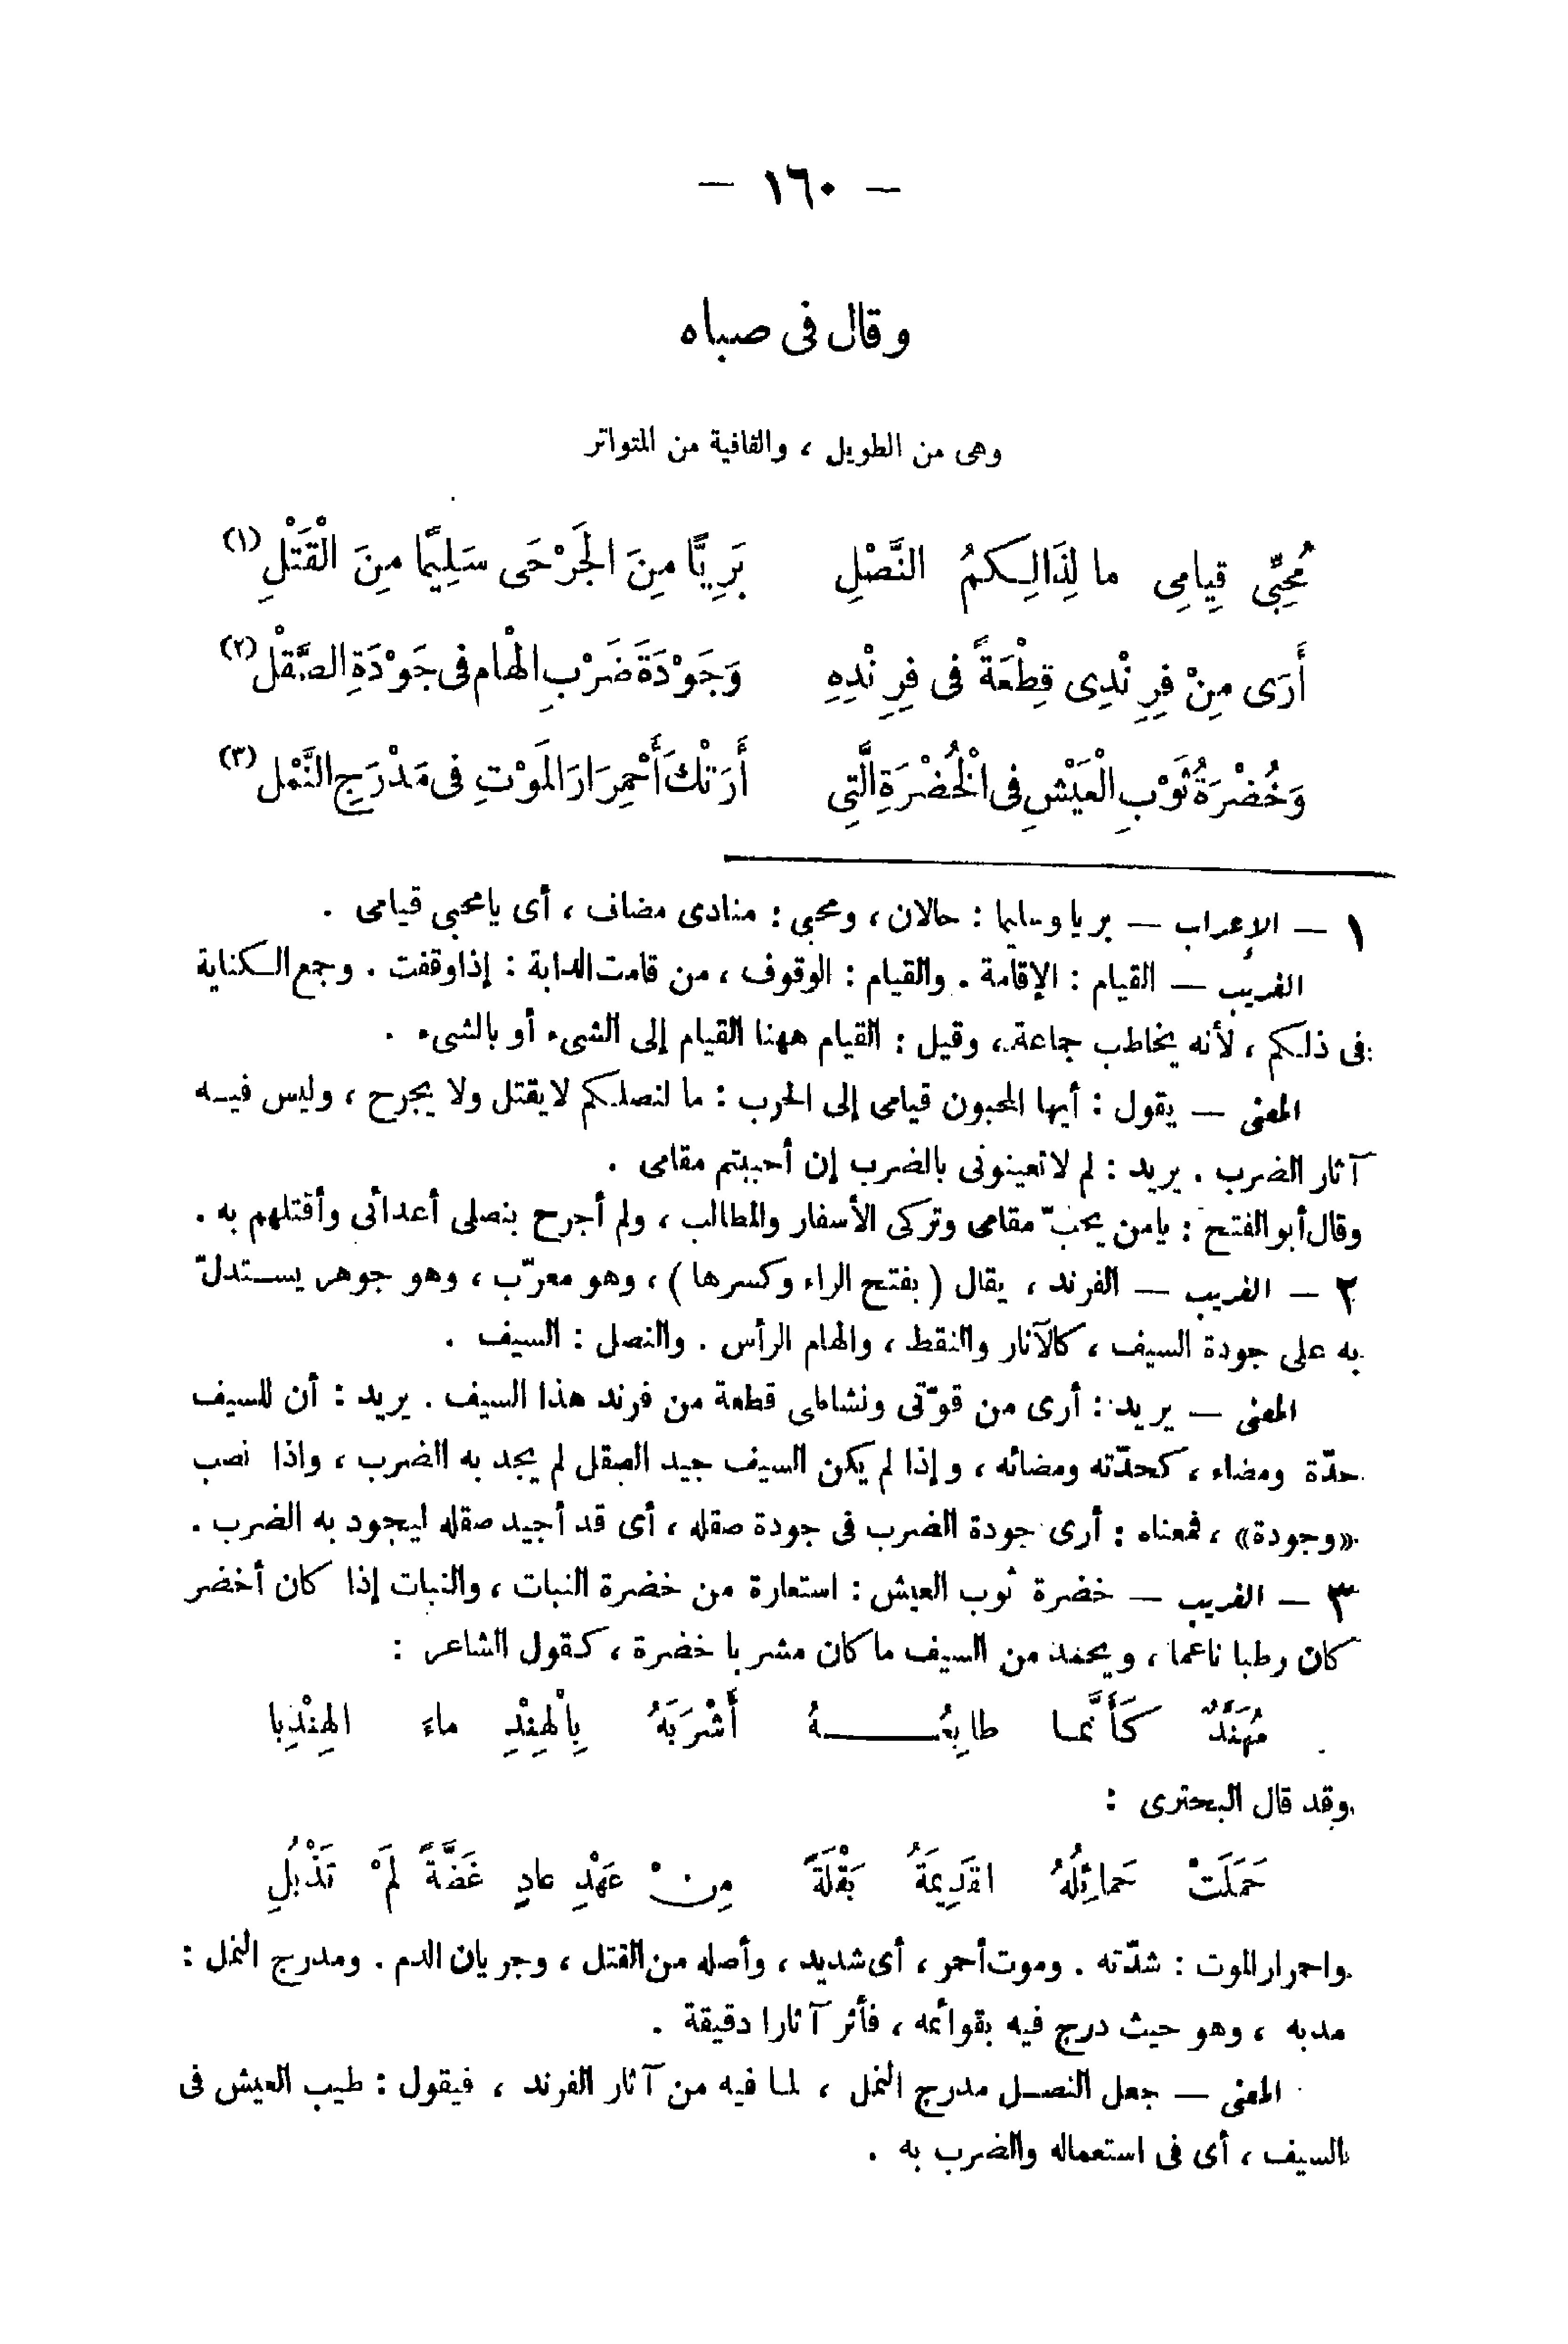 — ١٦٠ —
وقال فى صباه
وهى من الطويل ، والقافية من المتواتر
مُحِبِّى قِيامِى ما لِذَالِكُمُ النَّصْلِ بَرِيًّا مِنَ الجَرْحَى سَلِيمًا مِنَ الْقَتْلِ (١)
أَرَى مِنْ فِرِنْدِى قِطْعَةً فى فِرِنْدِهِ وَجَوْدَةَ ضَرْبِ الْهَامِ فى جَوْدَةِ الصَّقْلِ (٢)
وَخُضْرَةُ ثَوْبِ الْعَيْشِ فى الْخُضْرَةِ الَّتِى أَرَتْكَ أَحْمِرَارَ المَوْتِ فى مَدْرَجِ النَّمْلِ (٣)
١ — الإعراب — بريا وسليما : حالان ، ومحبي : منادى مضاف ، أى يا محبي قيامى .
الغريب — القيام : الإقامة . والقيام : الوقوف ، من قامت الدابة : إذا وقفت . وجمع الكناية
فى ذلكم ، لأنه يخاطب جماعة ، وقيل : القيام ههنا القيام إلى الشىء أو بالشىء .
المعنى — يقول : أيها المحبون قيامى إلى الحرب : ما لنصلكم لا يقتل ولا يجرح ، وليس فيه
آثار الضرب . يريد : لم لا تعينونى بالضرب إن أحببتم مقامى .
وقال أبو الفتح : يا من يحبّ مقامى وتركى الأسفار والمطالب ، ولم أجرح بنصلى أعدائى وأقتلهم به .
٢ — الغريب — الفرند ، يقال ( بفتح الراء وكسرها ) ، وهو معرّب ، وهو جوهر يستدلّ
به على جودة السيف ، كالآثار والنقط ، والهام الرأس . والنصل : السيف .
المعنى — يريد : أرى من قوّتى ونشاطى قطعة من فرند هذا السيف . يريد : أن للسيف
حدّة ومضاء ، كحدّته ومضائه ، وإذا لم يكن السيف جيد الصقل لم يجد به الضرب ، واذا نصب
«وجودة» ، فمعناه : أرى جودة الضرب فى جودة صقله ، أى قد أجيد صقله ليجود به الضرب .
٣ — الغريب — خضرة ثوب العيش : استعارة من خضرة النبات ، والنبات إذا كان أخضر
كان رطبا ناعما ، ويحمد من السيف ما كان مشربا خضرة ، كقول الشاعر :
مُهَنَّدٌ كَأَنَّمَا طابِعُهُ أَشْرَبَهُ بِالْهِنْدِ ماءَ الهِنْدِبا
وقد قال البحترى :
حَمَلَتْ حَمائِلُهُ القَدِيمَةُ بَقْلَةً مِنْ عَهْدِ عادٍ غَضَّةً لَمْ تَذْبُلِ
واحمرار الموت : شدّته . وموت أحمر ، أى شديد ، وأصله من القتل ، وجريان الدم . ومدرج النمل :
مدبه ، وهو حيث درج فيه بقوائمه ، فأثر آثارا دقيقة .
المعنى — جعل النصل مدرج النمل ، لما فيه من آثار الفرند ، فيقول : طيب العيش فى
السيف ، أى فى استعماله والضرب به .